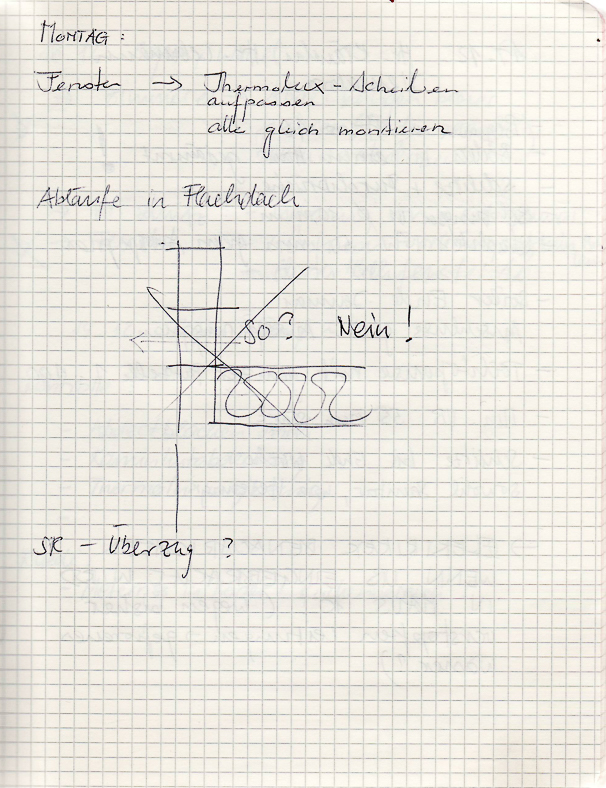 MONTAG:
Fenster → Thermolux-Scheiben
aufpassen
alle gleich montieren
Abläufe in Flachdach
SO? Nein!
SK - Überzug ?